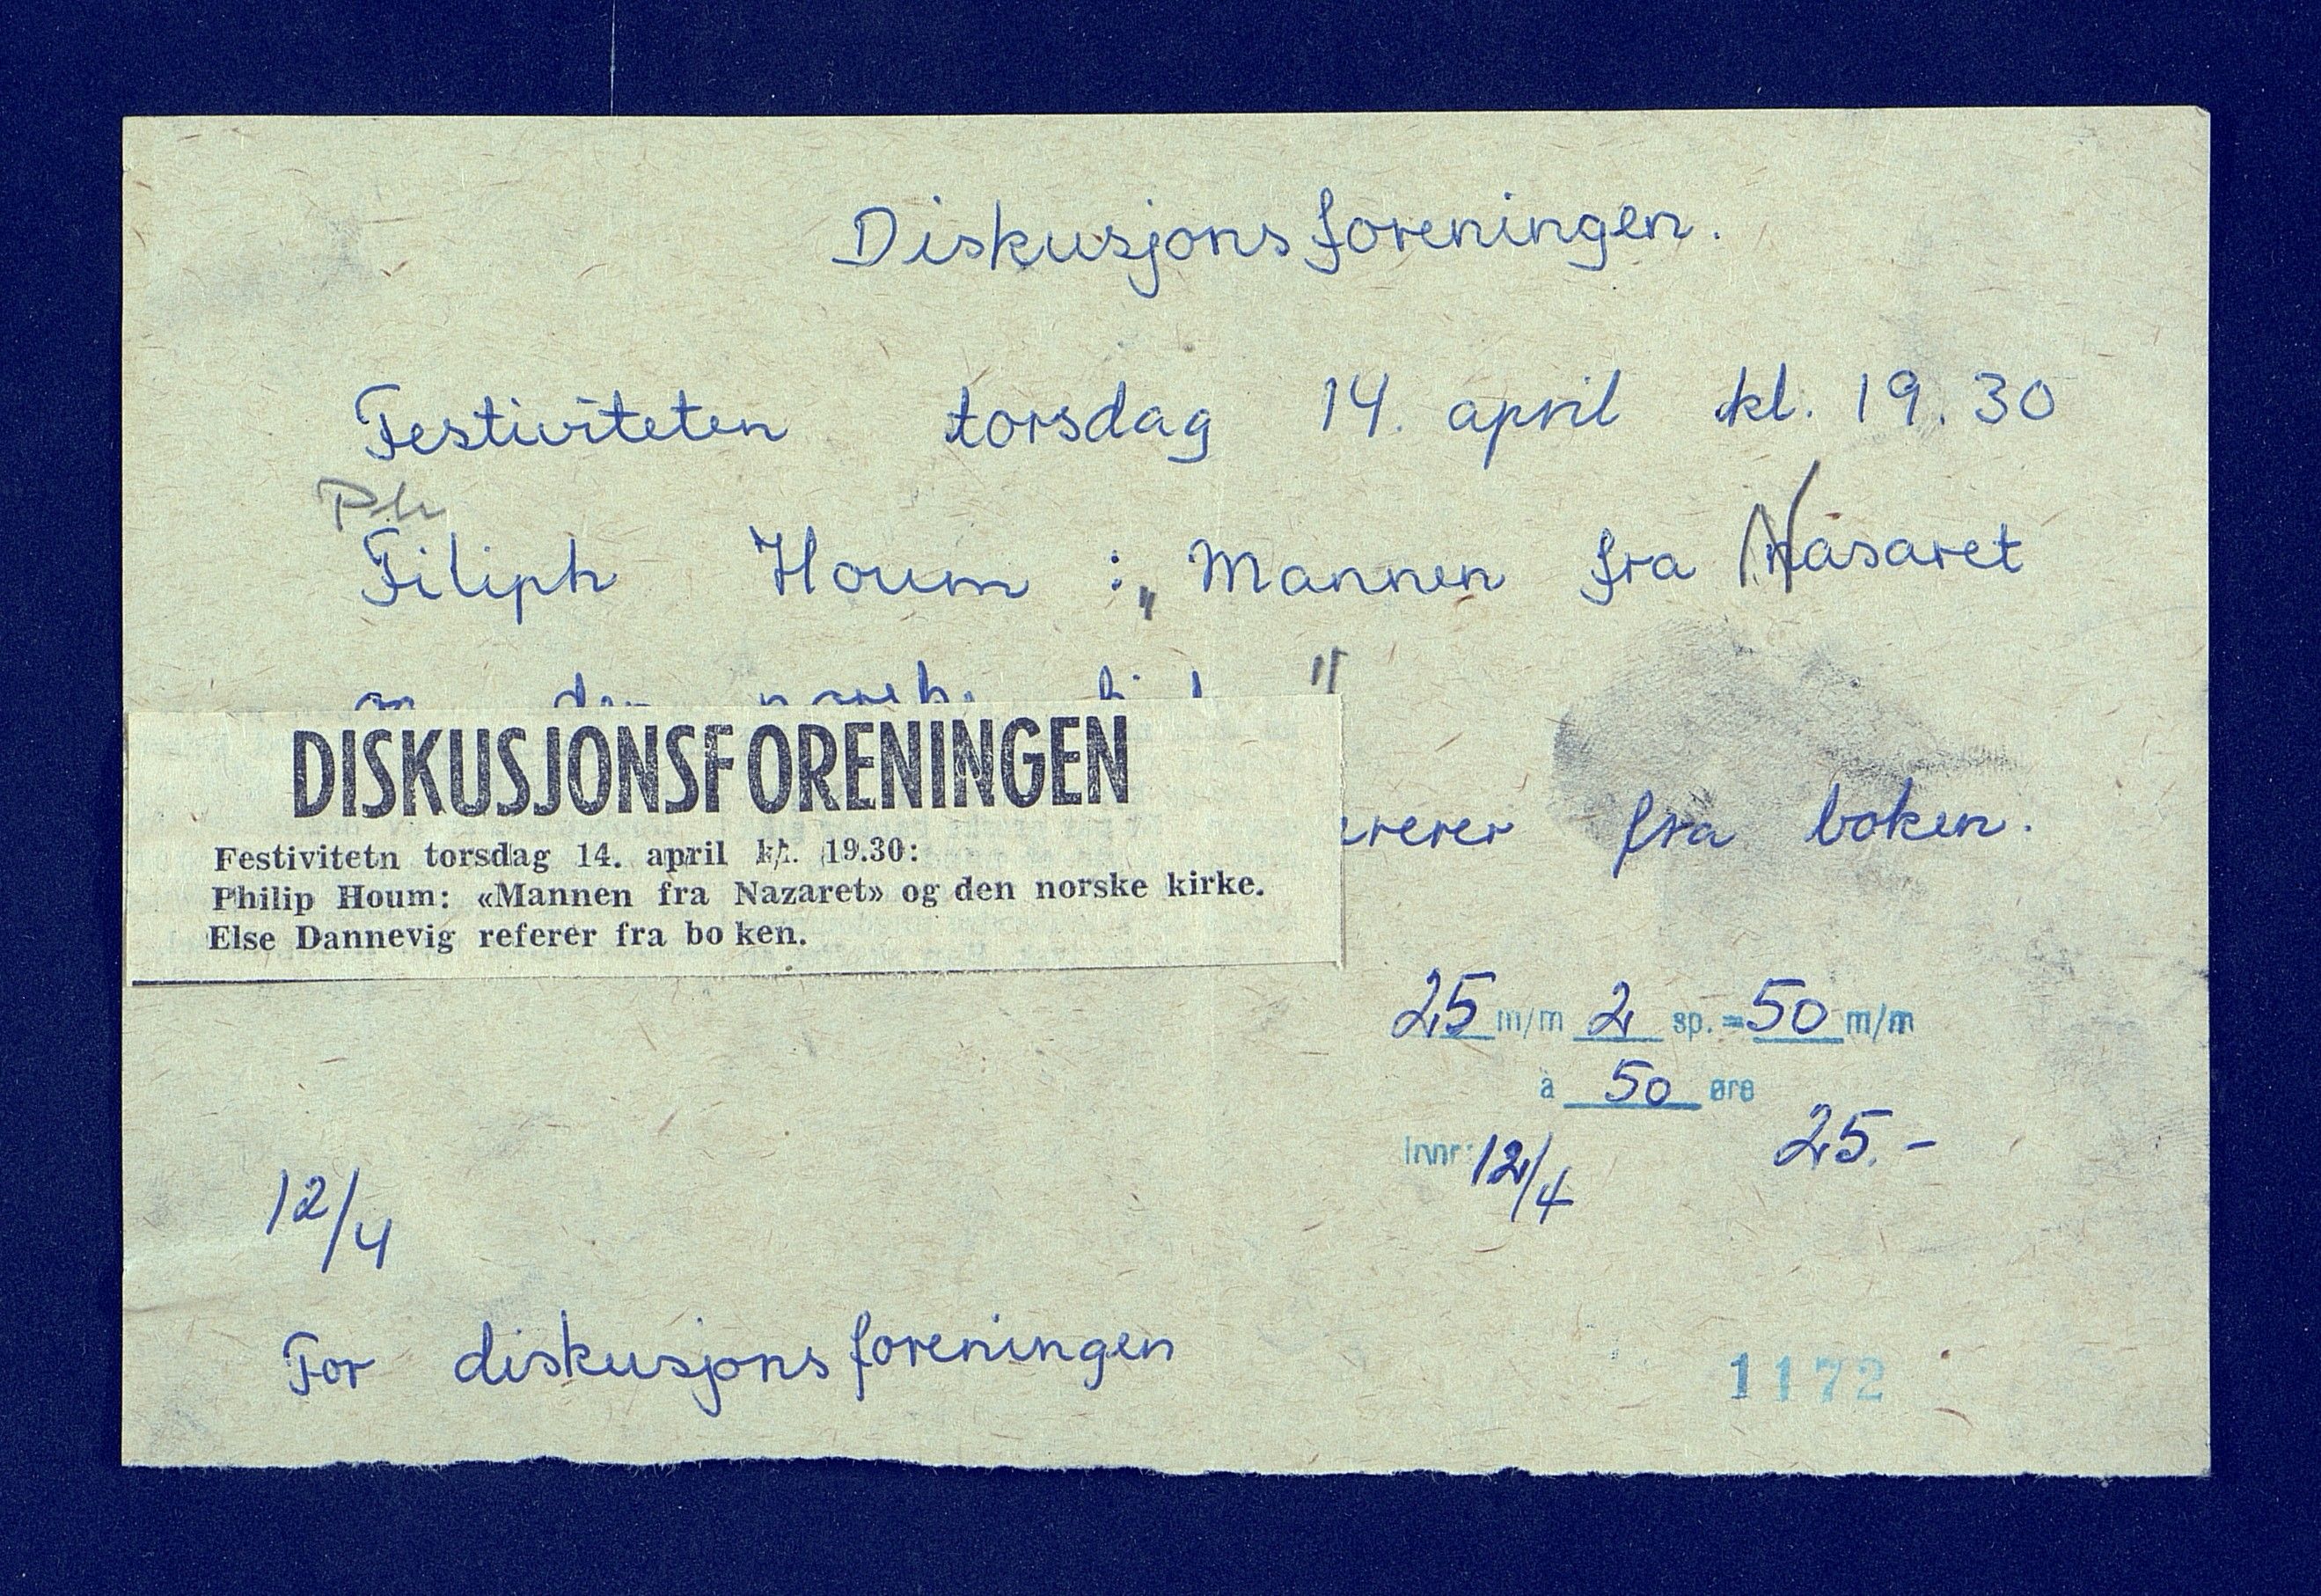 Diskusjonsforeningen.
Festiviteten torsdag 14. april kl. 19.30
Ph
Filiph Houm : „Mannen fra Nasaret
"
DISKUSJONSFORENINGEN
Festivitetn torsdag 14. april kl. 19.30:
Philip Houm: «Mannen fra Nazaret» og den norske kirke.
Else Dannevig referer fra bo ken.
fra boken.
25 m/m 2 sp. = 50 m/m
à 50 øre
Innr. 12/4 25.-
12/4
For diskusjonsforeningen
1172